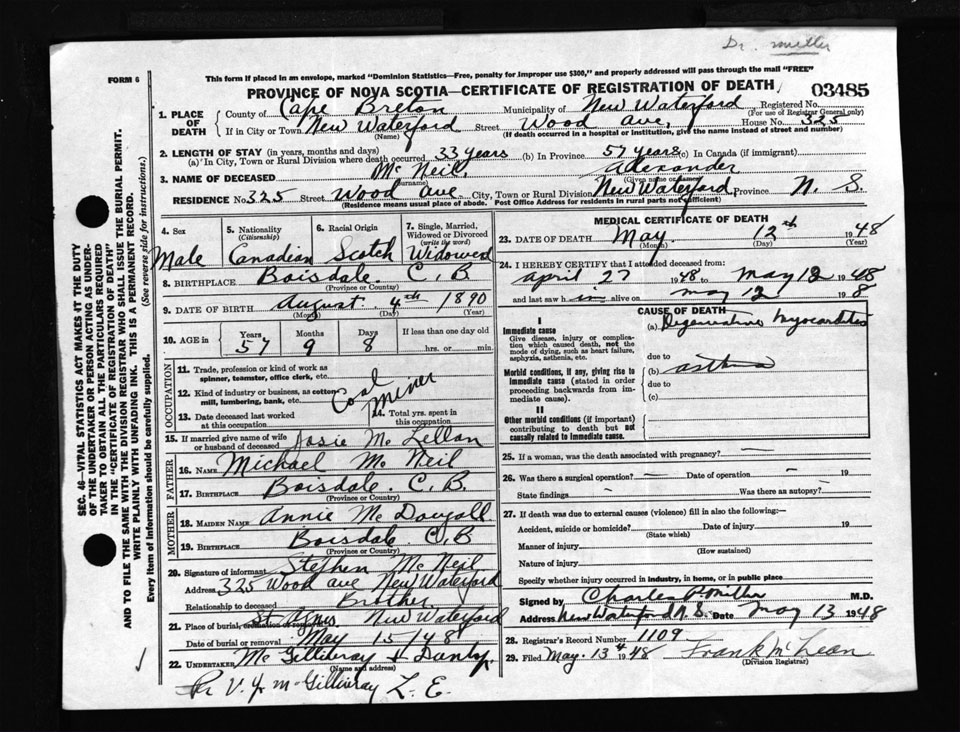 Dr. Miller
FORM 6
This form if placed in an envelope, marked "Dominion Statistics—Free, penalty for improper use $300," and properly addressed will pass through the mail "FREE"
PROVINCE OF NOVA SCOTIA—CERTIFICATE OF REGISTRATION OF DEATH
03485
1. PLACE OF DEATH
County of Cape Breton Municipality of New Waterford Registered No.
(For use of Registrar General only)
If in City or Town New Waterford Street Wood Ave, House No. 325
(Name) (If death occurred in a hospital or institution, give the name instead of street and number)
2. LENGTH OF STAY (in years, months and days)
(a) In City, Town or Rural Division where death occurred 33 years (b) In Province 57 years (c) In Canada (if immigrant)
3. NAME OF DECEASED Mc Neil, Alexander
(Surname) (Given name or names)
RESIDENCE No. 325 Street Wood Ave City, Town or Rural Division New Waterford Province N. S.
(Residence means usual place of abode. Post Office Address for residents in rural parts not sufficient)
4. Sex Male
5. Nationality (Citizenship) Canadian
6. Racial Origin Scotch
7. Single, Married, Widowed or Divorced (write the word) Widowed
8. BIRTHPLACE Boisdale C. B
(Province or Country)
9. DATE OF BIRTH August 4th 1890
(Month) (Day) (Year)
10. AGE in Years Months Days If less than one day old
57 9 8 hrs. or min.
OCCUPATION
11. Trade, profession or kind of work as spinner, teamster, office clerk, etc.
12. Kind of industry or business, as cotton mill, lumbering, bank, etc.
Coal Miner
13. Date deceased last worked at this occupation
14. Total yrs. spent in this occupation
15. If married give name of wife or husband of deceased Josie Mc Lellan
FATHER
16. NAME Michael Mc Neil
17. BIRTHPLACE Boisdale. C. B.
(Province or Country)
MOTHER
18. MAIDEN NAME Annie Mc Dougall
19. BIRTHPLACE Boisdale C, B
(Province or Country)
20. Signature of informant Stephen Mc Neil
Address 325 Wood Ave New Waterford
Relationship to deceased Brother
21. Place of burial, cremation or removal St Agnis New Waterford
Date of burial or removal May 15/48
22. UNDERTAKER Mc Gillivray &
(Name and address)
Pr V. J. McGillivray L. E.
MEDICAL CERTIFICATE OF DEATH
23. DATE OF DEATH May 12th 1948
(Month) (Day) (Year)
24. I HEREBY CERTIFY that I attended deceased from
April 27 1948 to May 12 1948
and last saw him alive on May 12 1948
CAUSE OF DEATH
I
Immediate cause
Give disease, injury or complication which caused death, not the mode of dying, such as heart failure, asphyxia, asthenia, etc.
(a) Degenerative Myocarditis
due to
Morbid conditions, if any, giving rise to immediate cause (stated in order proceeding backwards from immediate cause).
(b) asthma
due to
(c)
II
Other morbid conditions (if important) contributing to death but not causally related to immediate cause.
25. If a woman, was the death associated with pregnancy?
26. Was there a surgical operation? Date of operation 19
State findings Was there an autopsy?
27. If death was due to external causes (violence) fill in also the following:—
Accident, suicide or homicide? Date of injury 19
(State which)
Manner of injury
(How sustained)
Nature of injury
Specify whether injury occurred in industry, in home, or in public place
Signed by Charles P Miller M.D.
Address New Waterford N.S. Date May 13 1948
28. Registrar's Record Number 1109
29. Filed May. 13th 1948 Frank McLean
(Division Registrar)
SEC. 46—VITAL STATISTICS ACT MAKES IT THE DUTY
OF THE UNDERTAKER OR PERSON ACTING AS UNDER-
TAKER TO OBTAIN ALL THE PARTICULARS REQUIRED
IN THE "CERTIFICATE OF REGISTRATION OF DEATH"
AND TO FILE THE SAME WITH THE DIVISION REGISTRAR WHO SHALL ISSUE THE BURIAL PERMIT.
WRITE PLAINLY WITH UNFADING INK. THIS IS A PERMANENT RECORD.
Every item of information should be carefully supplied. (See reverse side for instructions.)